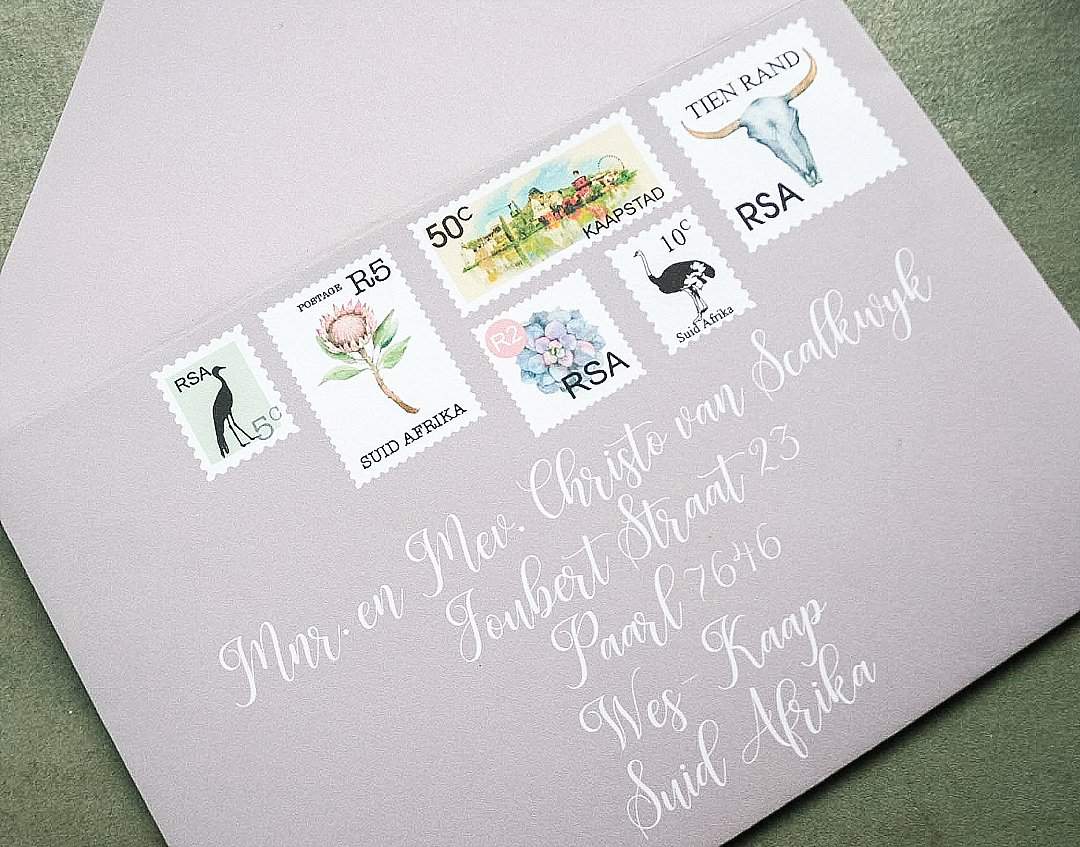 RSA
5c
POSTAGE R5
SUID AFRIKA
50c
KAAPSTAD
R2
RSA
10c
Suid Afrika
TIEN RAND
RSA
Mnr. en Mev. Christo van Scalkwyk
Joubert Straat 23
Paarl 7646
Wes-Kaap
Suid Afrika